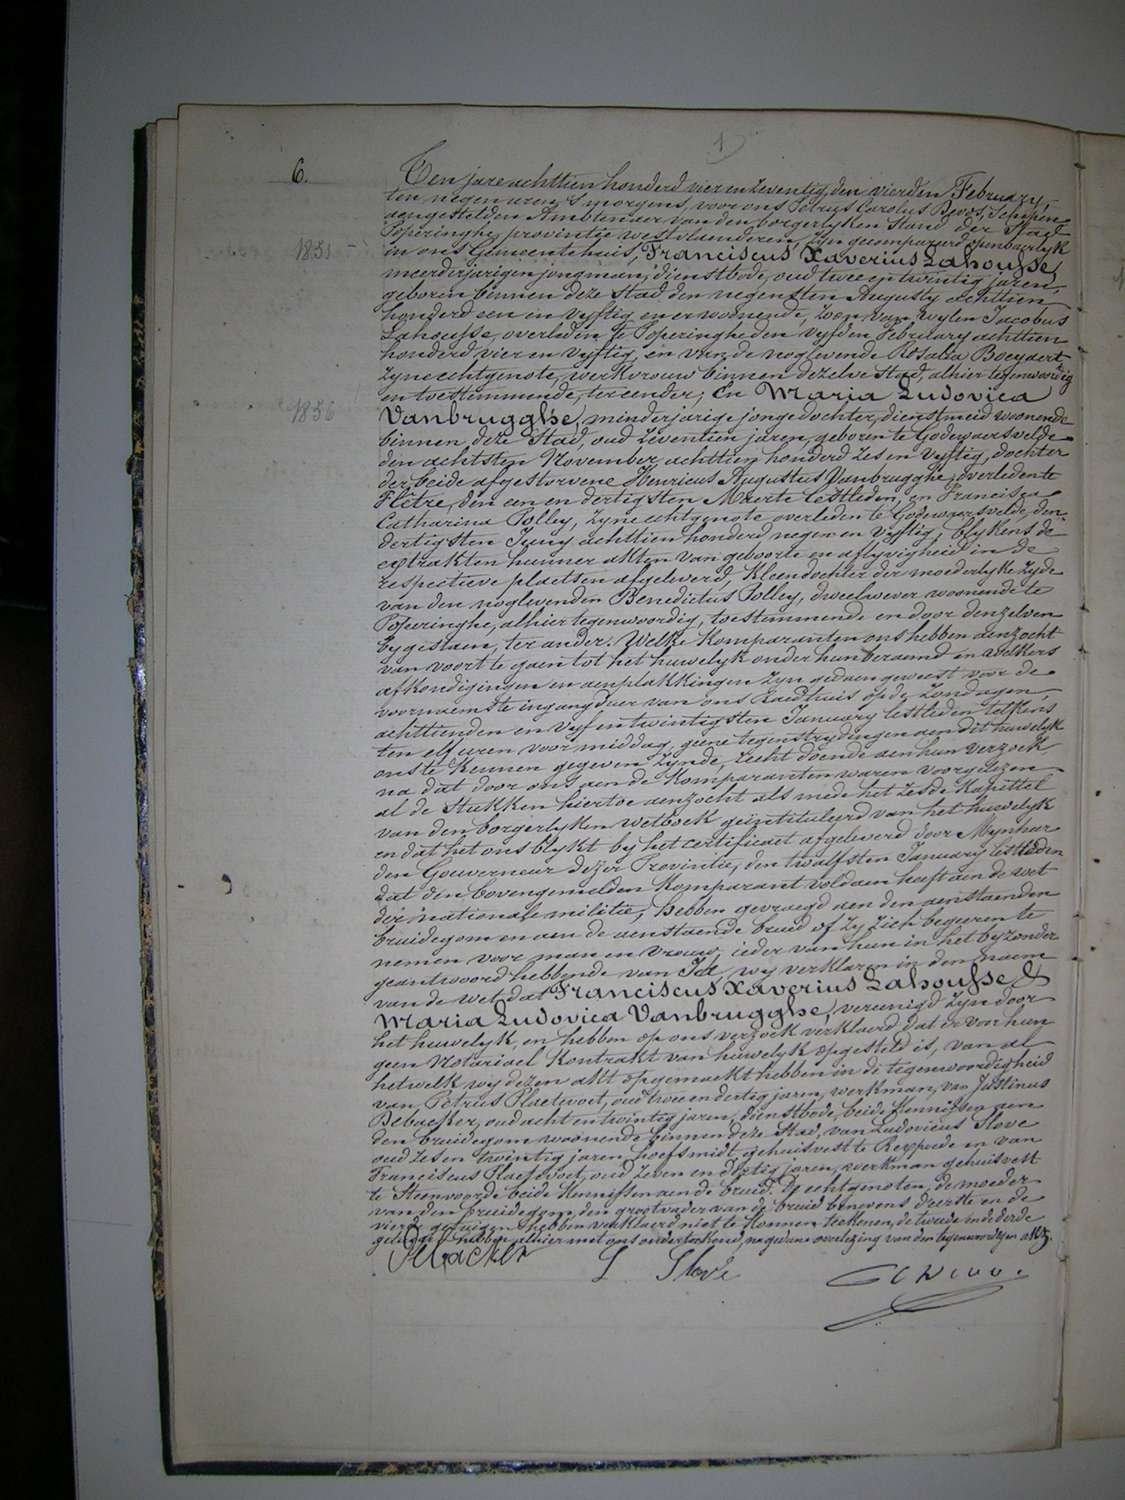 1
6.
Ten jare achttien honderd vier en zeventig, den vierden February,
ten negen uren 's morgens, voor ons Petrus Carolus Devos, Schepen
aengestelden Ambtenaer van den borgerlyken Stand der Stad
Poperinghe, provintie westvlaenderen, zyn gecompareerd openbaerlyk
1851
in ons Gemeentehuis, Franciscus Xaverius Lahousse,
meerderjarigen jongman, dienstbode, oud twee en twintig jaren,
geboren binnen deze stad den negensten Augusty achttien
honderd een en vyftig en er woonende, zoon van wylen Jacobus
Lahousse, overleden te Poperinghe den vyfden February achttien
honderd vier en vyftig, en van de noglevende Rosalia Boeyaert
zyne echtgenote, werkvrouw binnen dezelve Stad, alhier tegenwoordig
en toestemmende, ter eender; En Maria Ludovica
1856
Vanbrugghe, minderjarige jongedochter, dienstmeid woonende
binnen deze Stad, oud zeventien jaren, geboren te Godewaersvelde
den achtsten November achttien honderd zes en vyftig, dochter
der beide afgestorvene Henricus Augustus Vanbrugghe, overleden te
Flêtre, den een en dertigsten Maerte lestleden, en Francisca
Catharina Polley, zyne echtgenote overleden te Godewaersvelde, den
dertigsten Juny achttien honderd negen en vyftig, blykens de
extrakten hunner akten van geboorte en aflyvigheid in de
respectieve plaetsen afgeleverd, kleendochter der moederlyke zyde
van den noglevenden Benedictus Polley, dweelwever woonende te
Poperinghe, alhier tegenwoordig, toestemmende en door denzelven
bygestaen, ter ander. Welke komparanten ons hebben aenzocht
van voort te gaen tot het huwelyk onder hun beraemd en welkers
afkondigingen en aenplakkingen zyn gedaen geweest voor de
voornaemste ingangdeur van ons Raedhuis op de zondagen,
achttienden en vyf en twintigsten January lestleden telkens
ten elf uren voor middag, geene tegenstrydingen aen dit huwelyk
ons te kennen gegeven zynde, recht doende aen hun verzoek,
na dat door ons aen de komparanten waren voorgelezen
al de stukken hiertoe aenzocht als mede het zesde kapittel
van den borgerlyken wetboek geintituleerd van het huwelyk
en dat het ons blykt by het certificaet afgeleverd door Mynheer
den Gouverneur dezer Provintie, den twalfsten January lestleden
dat den bovengemelden komparant voldaen heeft aen de wet
der nationale militie, hebben gevraegd aen den aenstaenden
bruidegom en aen de aenstaende bruid of zy zich begeeren te
nemen voor man en vrouw, ieder van hun in het byzonder
geantwoord hebbende van Ja, wy verklaren in den naem
van de wet dat Franciscus Xaverius Lahousse &
Maria Ludovica Vanbrugghe, vereenigd zyn door
het huwelyk, en hebben op ons verzoek verklaerd dat er voor hun
geen Notariael kontrakt van huwelyk opgesteld is, van al
hetwelk wy dezen akt opgemaekt hebben in de tegenwoordigheid
van Petrus Plaetevoet, oud twee en dertig jaren, werkman, van Justinus
Debacker, oud acht en twintig jaren, dienstbode, beide kennissen aen
den bruidegom woonende binnen deze Stad, van Ludovicus Slove
oud zes en twintig jaren, hoefsmidt gehuisvest te Rexpoede en van
Franciscus Plaetevoet, oud zeven en dertig jaren, werkman gehuisvest
te Steenvoorde beide kennissen aen de bruid. De echtgenoten, de moeder
van den bruidegom, den grootvader van de bruid benevens d'eerste en de
vierde getuigen hebben verklaerd niet te konnen teekenen, de tweede en de derde
getuigen hebben alhier met ons onderteekend, na gedane overlezing van den tegenwoordigen akt.
L Slove